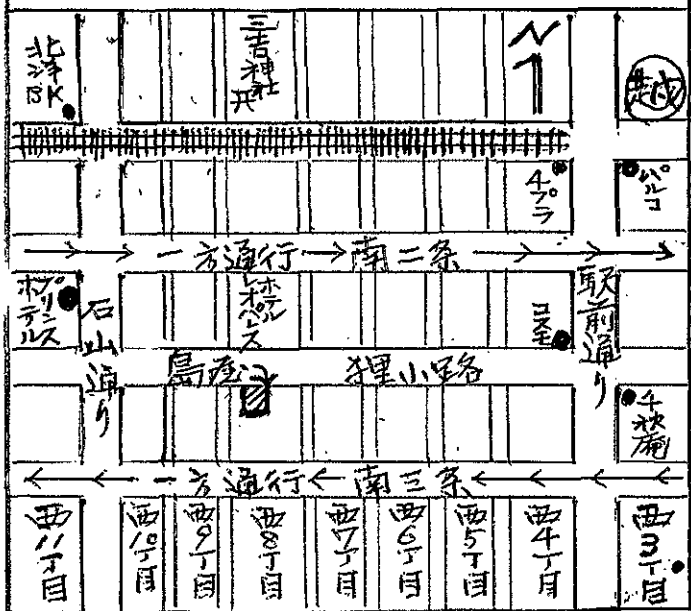 北洋BK
三吉神社
N
越
4プラ
パルコ
→→一方通行→南二条→→→
プリンスホテル
石山通り
ホテルレオパレス
コスモ
駅前通り
狸小路
千秋庵
←←←一方通行←南三条←←←←
西11丁目
西10丁目
西9丁目
西8丁目
西7丁目
西6丁目
西5丁目
西4丁目
西3丁目